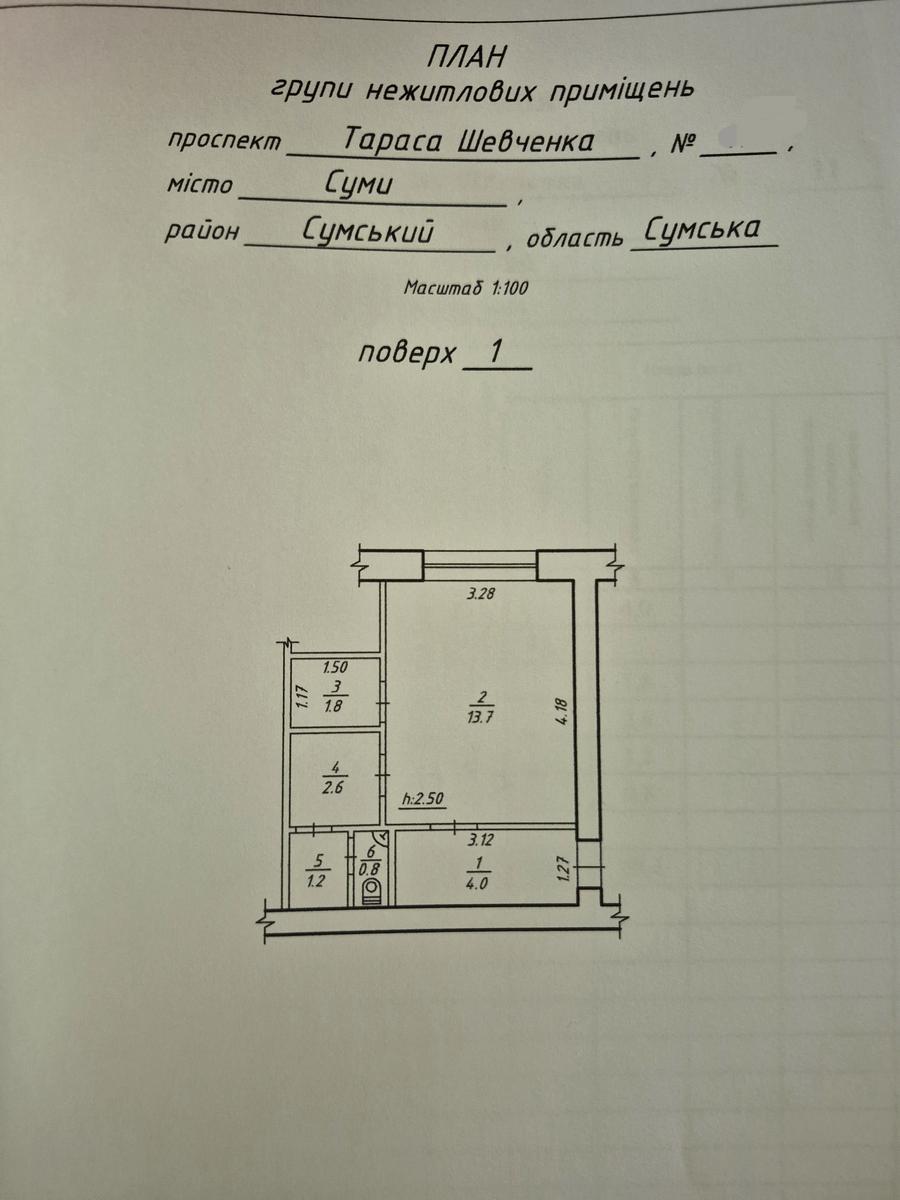 ПЛАН
групи нежитлових приміщень
проспект Тараса Шевченка, № ,
місто Суми,
район Сумський, область Сумська
Масштаб 1:100
поверх 1
3.28
1.50
1.17
3
1.8
2
13.7
4.18
4
2.6
h:2.50
3.12
5
1.2
6
0.8
1
4.0
1.27